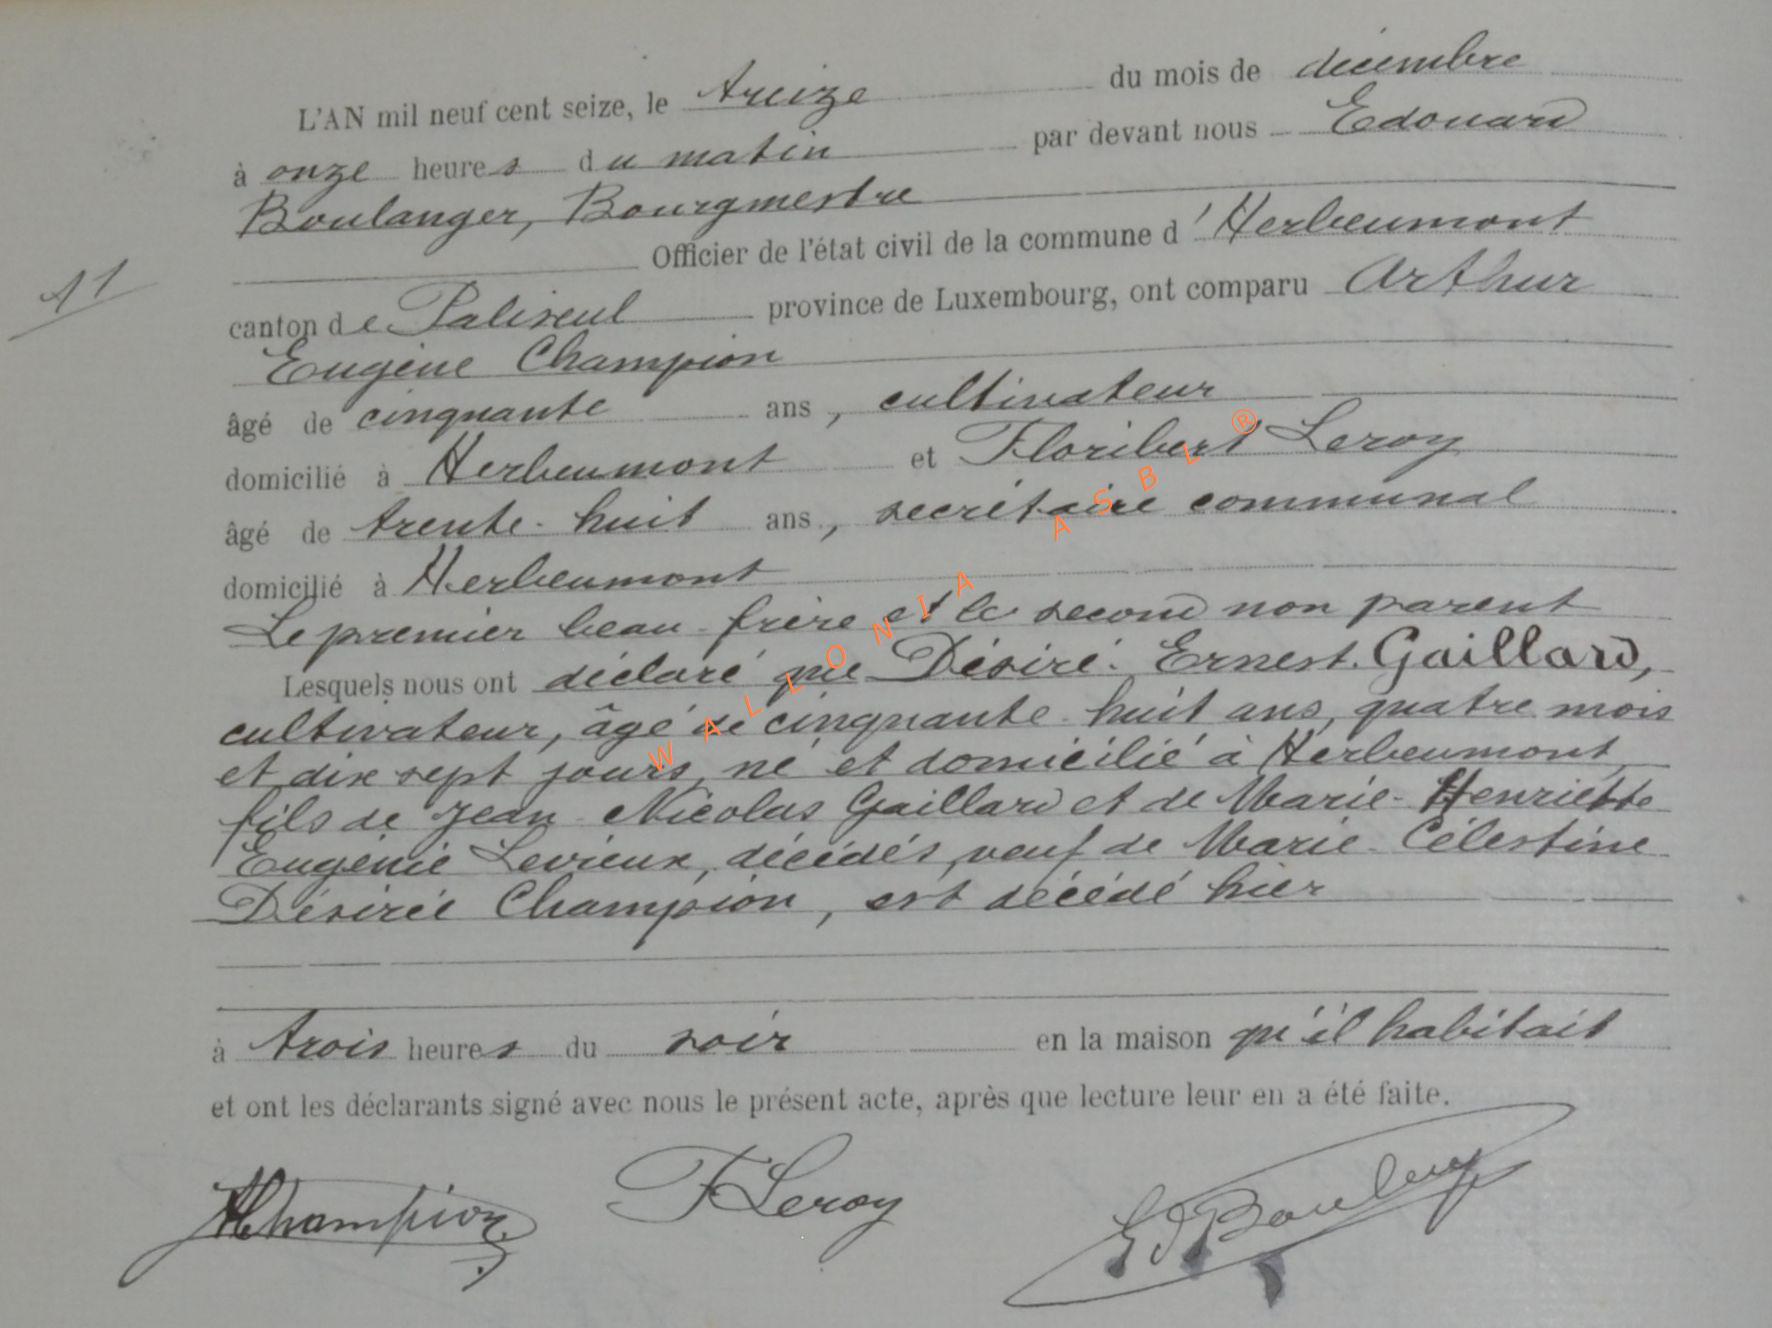 L'AN mil neuf cent seize, le treize du mois de décembre
à onze heures du matin par devant nous Edouard
Boulanger, Bourgmestre
Officier de l'état civil de la commune d'Herbeumont
11
canton de Paliseul province de Luxembourg, ont comparu Arthur
Eugène Champion
âgé de cinquante ans, cultivateur
domicilié à Herbeumont et Floribert Leroy
âgé de trente-huit ans, secrétaire communal
domicilié à Herbeumont
Le premier beau-frère et le second non parent
Lesquels nous ont déclaré que Désiré-Ernest Gaillard,
cultivateur, âgé de cinquante-huit ans, quatre mois
et dix sept jours, né et domicilié à Herbeumont,
fils de Jean-Nicolas Gaillard et de Marie-Henriette
Eugénie Levieux, décédés, veuf de Marie-Célestine
Désirée Champion, est décédé hier
à trois heures du soir en la maison qu'il habitait
et ont les déclarants signé avec nous le présent acte, après que lecture leur en a été faite.
AChampion FLeroy Ed Boulanger
WALLONIA ASBL ®